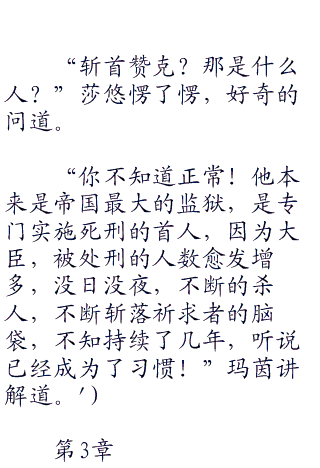 “斩首赞克？那是什么
人？”莎悠愣了愣，好奇的
问道。
“你不知道正常！他本
来是帝国最大的监狱，是专
门实施死刑的首人，因为大
臣，被处刑的人数愈发增
多，没日没夜，不断的杀
人，不断斩落祈求者的脑
袋，不知持续了几年，听说
已经成为了习惯！”玛茵讲
解道。')
第3章